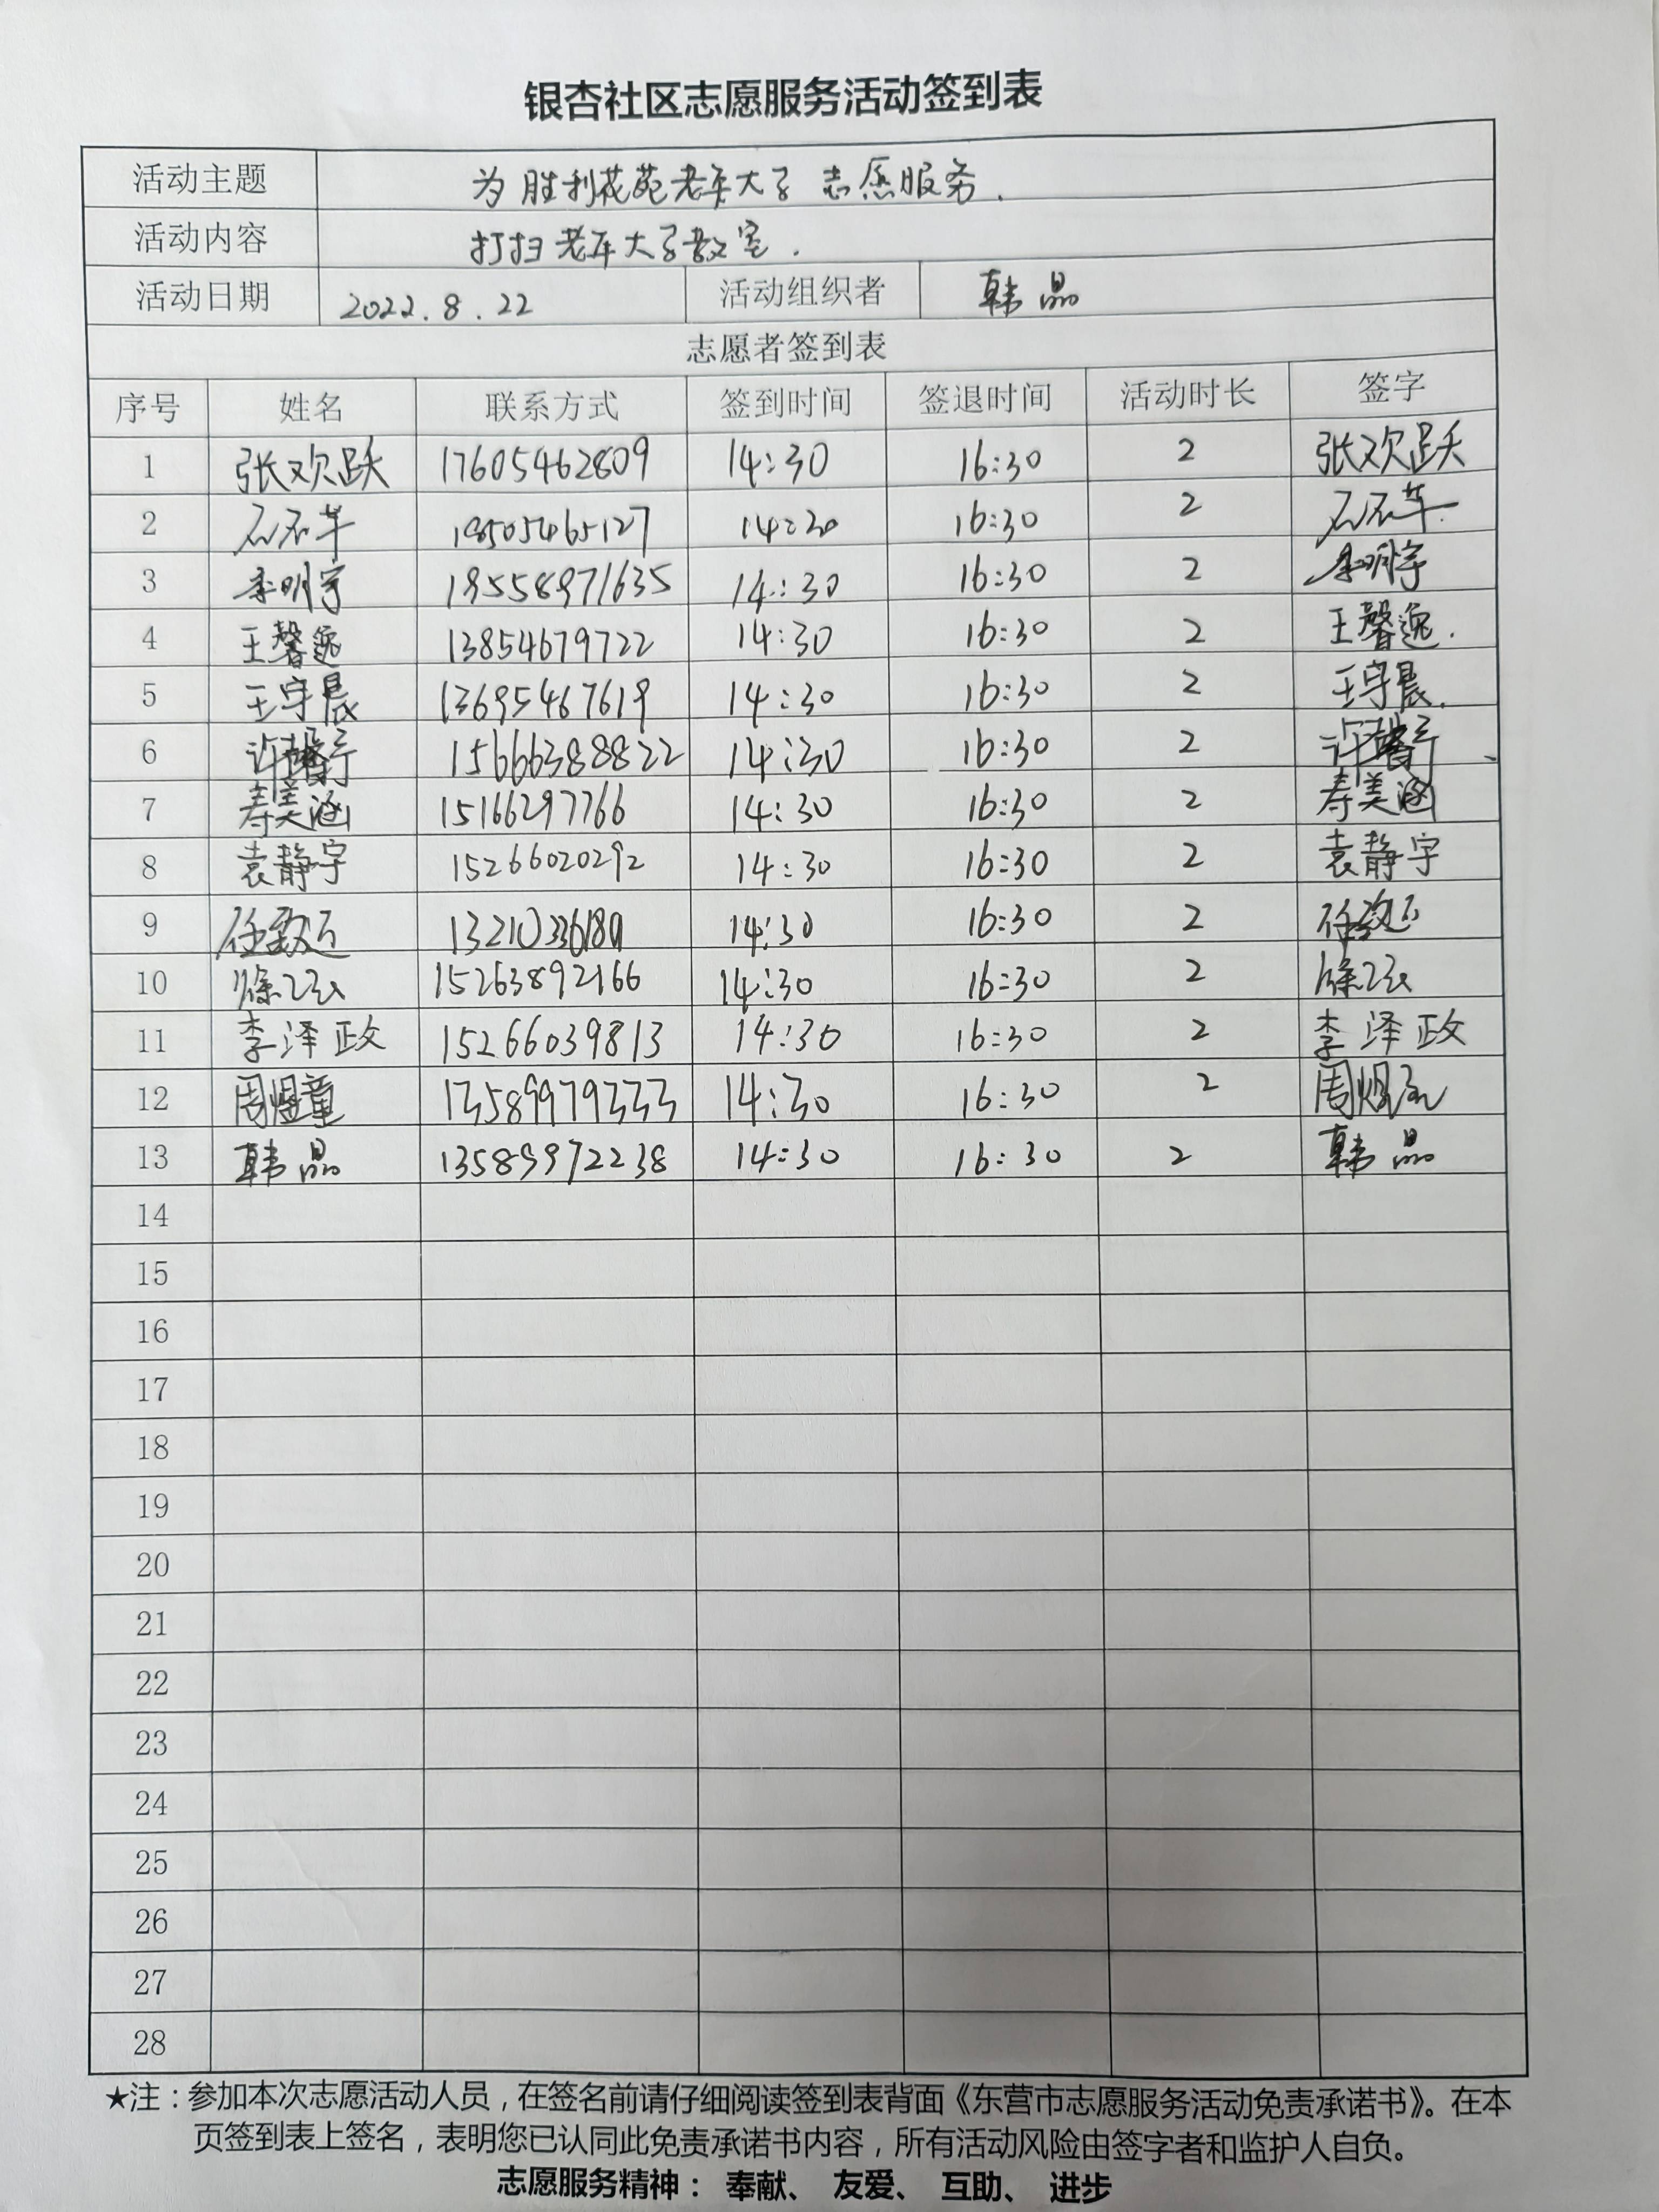 银杏社区志愿服务活动签到表
活动主题 为胜利花苑老年大学志愿服务.
活动内容 打扫老年大学教室.
活动日期 2022.8.22 活动组织者 韩晶
志愿者签到表
序号 姓名 联系方式 签到时间 签退时间 活动时长 签字
1 张欢跃 17605462809 14:30 16:30 2 张欢跃
2 14:30 16:30 2
3 李明宇 14:30 16:30 2 李明宇
4 王馨逸 13854679722 14:30 16:30 2 王馨逸.
5 王宇晨 13695467619 14:30 16:30 2 王宇晨.
6 15666388822 14:30 16:30 2
7 寿美涵 15166297766 14:30 16:30 2 寿美涵
8 袁静宇 15266020292 14:30 16:30 2 袁静宇
9 14:30 16:30 2
10 15263892166 14:30 16:30 2
11 李泽政 15266039813 14:30 16:30 2 李泽政
12 周煜童 13589979333 14:30 16:30 2
13 韩晶 13589972238 14:30 16:30 2 韩晶
14
15
16
17
18
19
20
21
22
23
24
25
26
27
28
★注：参加本次志愿活动人员，在签名前请仔细阅读签到表背面《东营市志愿服务活动免责承诺书》。在本
页签到表上签名，表明您已认同此免责承诺书内容，所有活动风险由签字者和监护人自负。
志愿服务精神： 奉献、 友爱、 互助、 进步